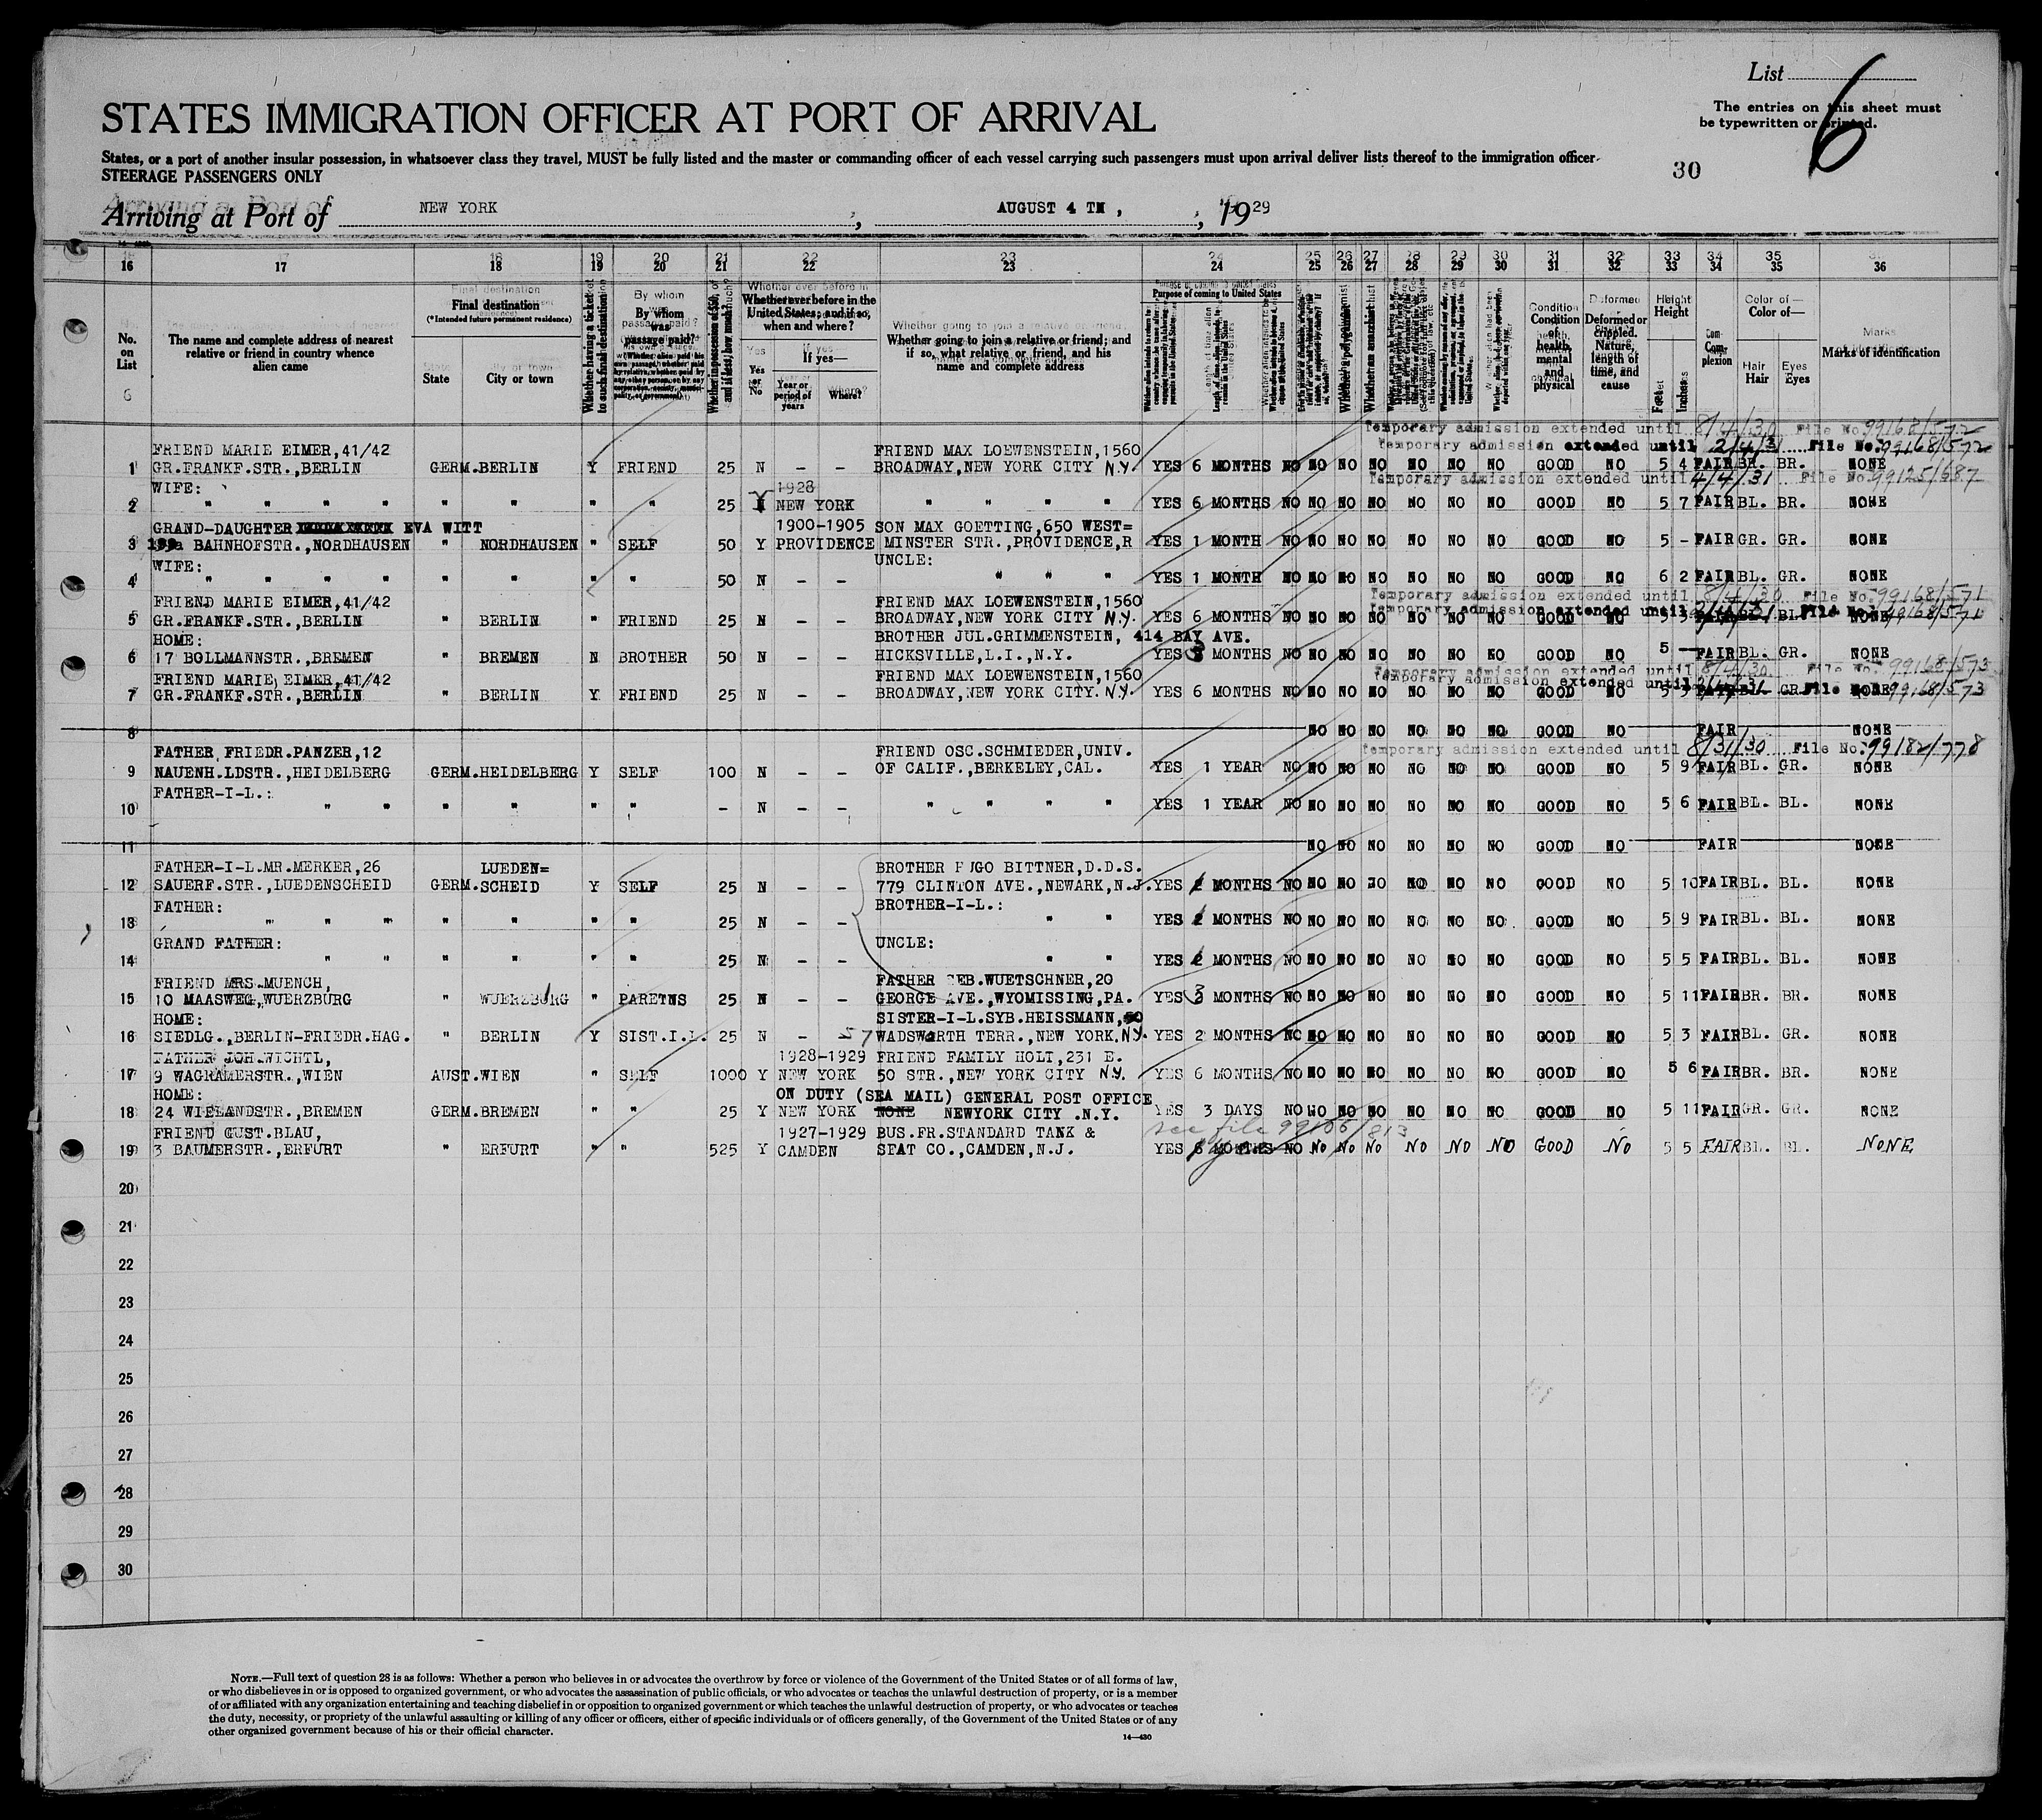 List 6
The entries on this sheet must
be typewritten or printed.
STATES IMMIGRATION OFFICER AT PORT OF ARRIVAL
States, or a port of another insular possession, in whatsoever class they travel, MUST be fully listed and the master or commanding officer of each vessel carrying such passengers must upon arrival deliver lists thereof to the immigration officer
STEERAGE PASSENGERS ONLY
30
Arriving at Port of NEW YORK, AUGUST 4 TH, 1929
16 17 18 19 20 21 22 23 24 25 26 27 28 29 30 31 32 33 34 35 36
No. on List
The name and complete address of nearest relative or friend in country whence alien came
Final destination
(*Intended future permanent residence)
State City or town
Whether having a ticket to such final destination
By whom was passage paid?
Whether in possession of $50, and if less, how much?
Whether ever before in the United States; and if so, when and where?
Yes or No
If yes—
Year or period of years Where?
Whether going to join a relative or friend; and if so, what relative or friend, and his name and complete address
Purpose of coming to United States
Whether a polygamist
Whether an anarchist
Condition of health, mental and physical
Deformed or crippled. Nature, length of time, and cause
Height
Feet Inches
Complexion
Color of—
Hair Eyes
Marks of identification
Temporary admission extended until 8/4/30 File No. 99168/572
Temporary admission extended until 2/4/31 File No. 99168/572
FRIEND MARIE EIMER,41/42 FRIEND MAX LOEWENSTEIN,1560
1 GR.FRANKF.STR.,BERLIN GERM. BERLIN Y FRIEND 25 N - - BROADWAY,NEW YORK CITY N.Y. YES 6 MONTHS NO NO NO NO NO NO NO GOOD NO 5 4 FAIR BR. BR. NONE
Temporary admission extended until 4/4/31 File No. 99125/687
WIFE: 1928
2 " " " " " " " " 25 Y NEW YORK " " " " YES 6 MONTHS NO NO NO NO NO NO NO GOOD NO 5 7 FAIR BL. BR. NONE
GRAND-DAUGHTER EVA WITT 1900-1905 SON MAX GOETTING,650 WEST=
3 BAHNHOFSTR.,NORDHAUSEN " NORDHAUSEN " SELF 50 Y PROVIDENCE MINSTER STR.,PROVIDENCE,R YES 1 MONTH NO NO NO NO NO NO NO GOOD NO 5 - FAIR GR. GR. NONE
WIFE: UNCLE:
4 " " " " " " " " 50 N - - " " " YES 1 MONTH NO NO NO NO NO NO NO GOOD NO 6 2 FAIR BL. GR. NONE
Temporary admission extended until 8/4/30 File No. 99168/571
FRIEND MARIE EIMER,41/42 FRIEND MAX LOEWENSTEIN,1560
Temporary admission extended until 2/4/31 File No. 99168/571
5 GR.FRANKF.STR.,BERLIN " BERLIN " FRIEND 25 N - - BROADWAY,NEW YORK CITY N.Y. YES 6 MONTHS NO NO NO NO NO NO NO GOOD NO 5 FAIR BL. NONE
HOME: BROTHER JUL.GRIMMENSTEIN, 414 BAY AVE.
6 17 BOLLMANNSTR.,BREMEN " BREMEN N BROTHER 50 N - - HICKSVILLE,L.I.,N.Y. YES 3 MONTHS NO NO NO NO NO NO NO GOOD NO 5 - FAIR BL. GR. NONE
Temporary admission extended until 8/4/30 File No. 99168/573
FRIEND MARIE EIMER,41/42 FRIEND MAX LOEWENSTEIN,1560
Temporary admission extended until 2/4/31 File No. 99168/573
7 GR.FRANKF.STR.,BERLIN " BERLIN Y FRIEND 25 N - - BROADWAY,NEW YORK CITY. N.Y. YES 6 MONTHS NO NO NO NO NO NO NO GOOD NO 5 FAIR GR. NONE
8 NO NO NO NO NO NO GOOD NO FAIR NONE
Temporary admission extended until 8/31/30 File No. 99182/778
FATHER FRIEDR.PANZER,12 FRIEND OSC.SCHMIEDER,UNIV.
9 NAUENH.LDSTR.,HEIDELBERG GERM. HEIDELBERG Y SELF 100 N - - OF CALIF.,BERKELEY,CAL. YES 1 YEAR NO NO NO NO NO NO NO GOOD NO 5 9 FAIR BL. GR. NONE
FATHER-I-L.:
10 " " " " " " - N - - " " " " YES 1 YEAR NO NO NO NO NO NO NO GOOD NO 5 6 FAIR BL. BL. NONE
11 NO NO NO NO NO NO GOOD NO FAIR NONE
FATHER-I-L.MR.MERKER,26 LUEDEN= BROTHER HUGO BITTNER,D.D.S.
12 SAUERF.STR.,LUEDENSCHEID GERM. SCHEID Y SELF 25 N - - 779 CLINTON AVE.,NEWARK,N.J. YES MONTHS NO NO NO NO NO NO NO GOOD NO 5 10 FAIR BL. BL. NONE
FATHER: BROTHER-I-L.:
13 " " " " " " " 25 N - - " " YES MONTHS NO NO NO NO NO NO NO GOOD NO 5 9 FAIR BL. BL. NONE
GRAND FATHER: UNCLE:
14 " " " " " " 25 N - - " " YES MONTHS NO NO NO NO NO NO NO GOOD NO 5 5 FAIR BL. BL. NONE
FRIEND MRS.MUENCH, FATHER SEB.WUETSCHNER,20
15 10 MAASWEG,WUERZBURG " WUERZBURG " PARETNS 25 N - - GEORGE AVE.,WYOMISSING,PA. YES 3 MONTHS NO NO NO NO NO NO NO GOOD NO 5 11 FAIR BR. BR. NONE
HOME: SISTER-I-L.SYB.HEISSMANN,
16 SIEDLG.,BERLIN-FRIEDR.HAG. " BERLIN Y SIST.I.L. 25 N - 57 WADSWORTH TERR.,NEW YORK.N.Y. YES 2 MONTHS NO NO NO NO NO NO NO GOOD NO 5 3 FAIR BL. GR. NONE
FATHER JOH.WICHTL, 1928-1929 FRIEND FAMILY HOLT,231 E.
17 9 WAGRAMERSTR.,WIEN AUST. WIEN " SELF 1000 Y NEW YORK 50 STR.,NEW YORK CITY N.Y. YES 6 MONTHS NO NO NO NO NO NO NO GOOD NO 5 6 FAIR BR. BR. NONE
HOME: ON DUTY (SEA MAIL) GENERAL POST OFFICE
18 24 WIELANDSTR.,BREMEN GERM. BREMEN " " 25 Y NEW YORK NONE NEWYORK CITY .N.Y. YES 3 DAYS NO NO NO NO NO NO NO GOOD NO 5 11 FAIR GR. GR. NONE
FRIEND GUST.BLAU, 1927-1929 BUS.FR.STANDARD TANK & see file 99106/813
19 3 BAUMERSTR.,ERFURT " ERFURT " " 525 Y CAMDEN SEAT CO.,CAMDEN,N.J. YES 6 MONTHS NO NO NO NO NO NO NO GOOD NO 5 5 FAIR BL. BL. NONE
20
21
22
23
24
25
26
27
28
29
30
NOTE.—Full text of question 28 is as follows: Whether a person who believes in or advocates the overthrow by force or violence of the Government of the United States or of all forms of law,
or who disbelieves in or is opposed to organized government, or who advocates the assassination of public officials, or who advocates or teaches the unlawful destruction of property, or is a member
of or affiliated with any organization entertaining and teaching disbelief in or opposition to organized government or which teaches the unlawful destruction of property, or who advocates or teaches
the duty, necessity, or propriety of the unlawful assaulting or killing of any officer or officers, either of specific individuals or of officers generally, of the Government of the United States or of any
other organized government because of his or their official character.
14—430